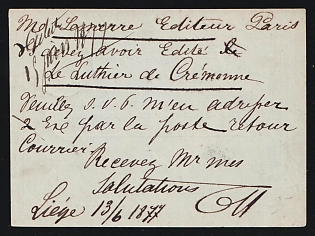 Mr Lemerre Editeur Paris
avez avoir Edité le
Le Luthier de Crémonne
Veuillez s.v.p. m'en adresser
2 Exe par la poste retour
Courrier
Recevez Mr mes
Salutations
Liége 13/6 1877